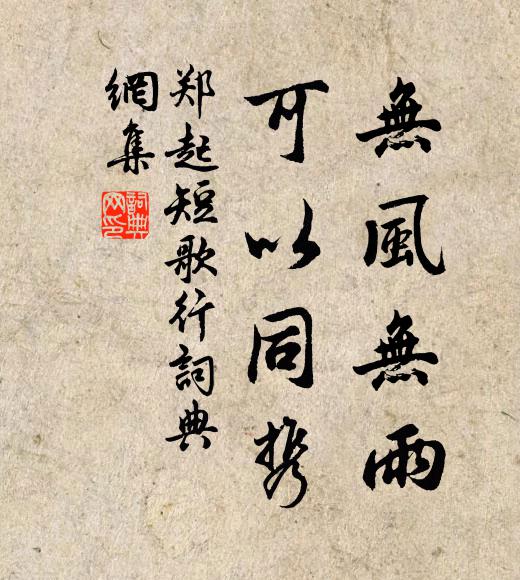 無風無雨
可以同携
郑起短歌行詞典
網集
詞典網印